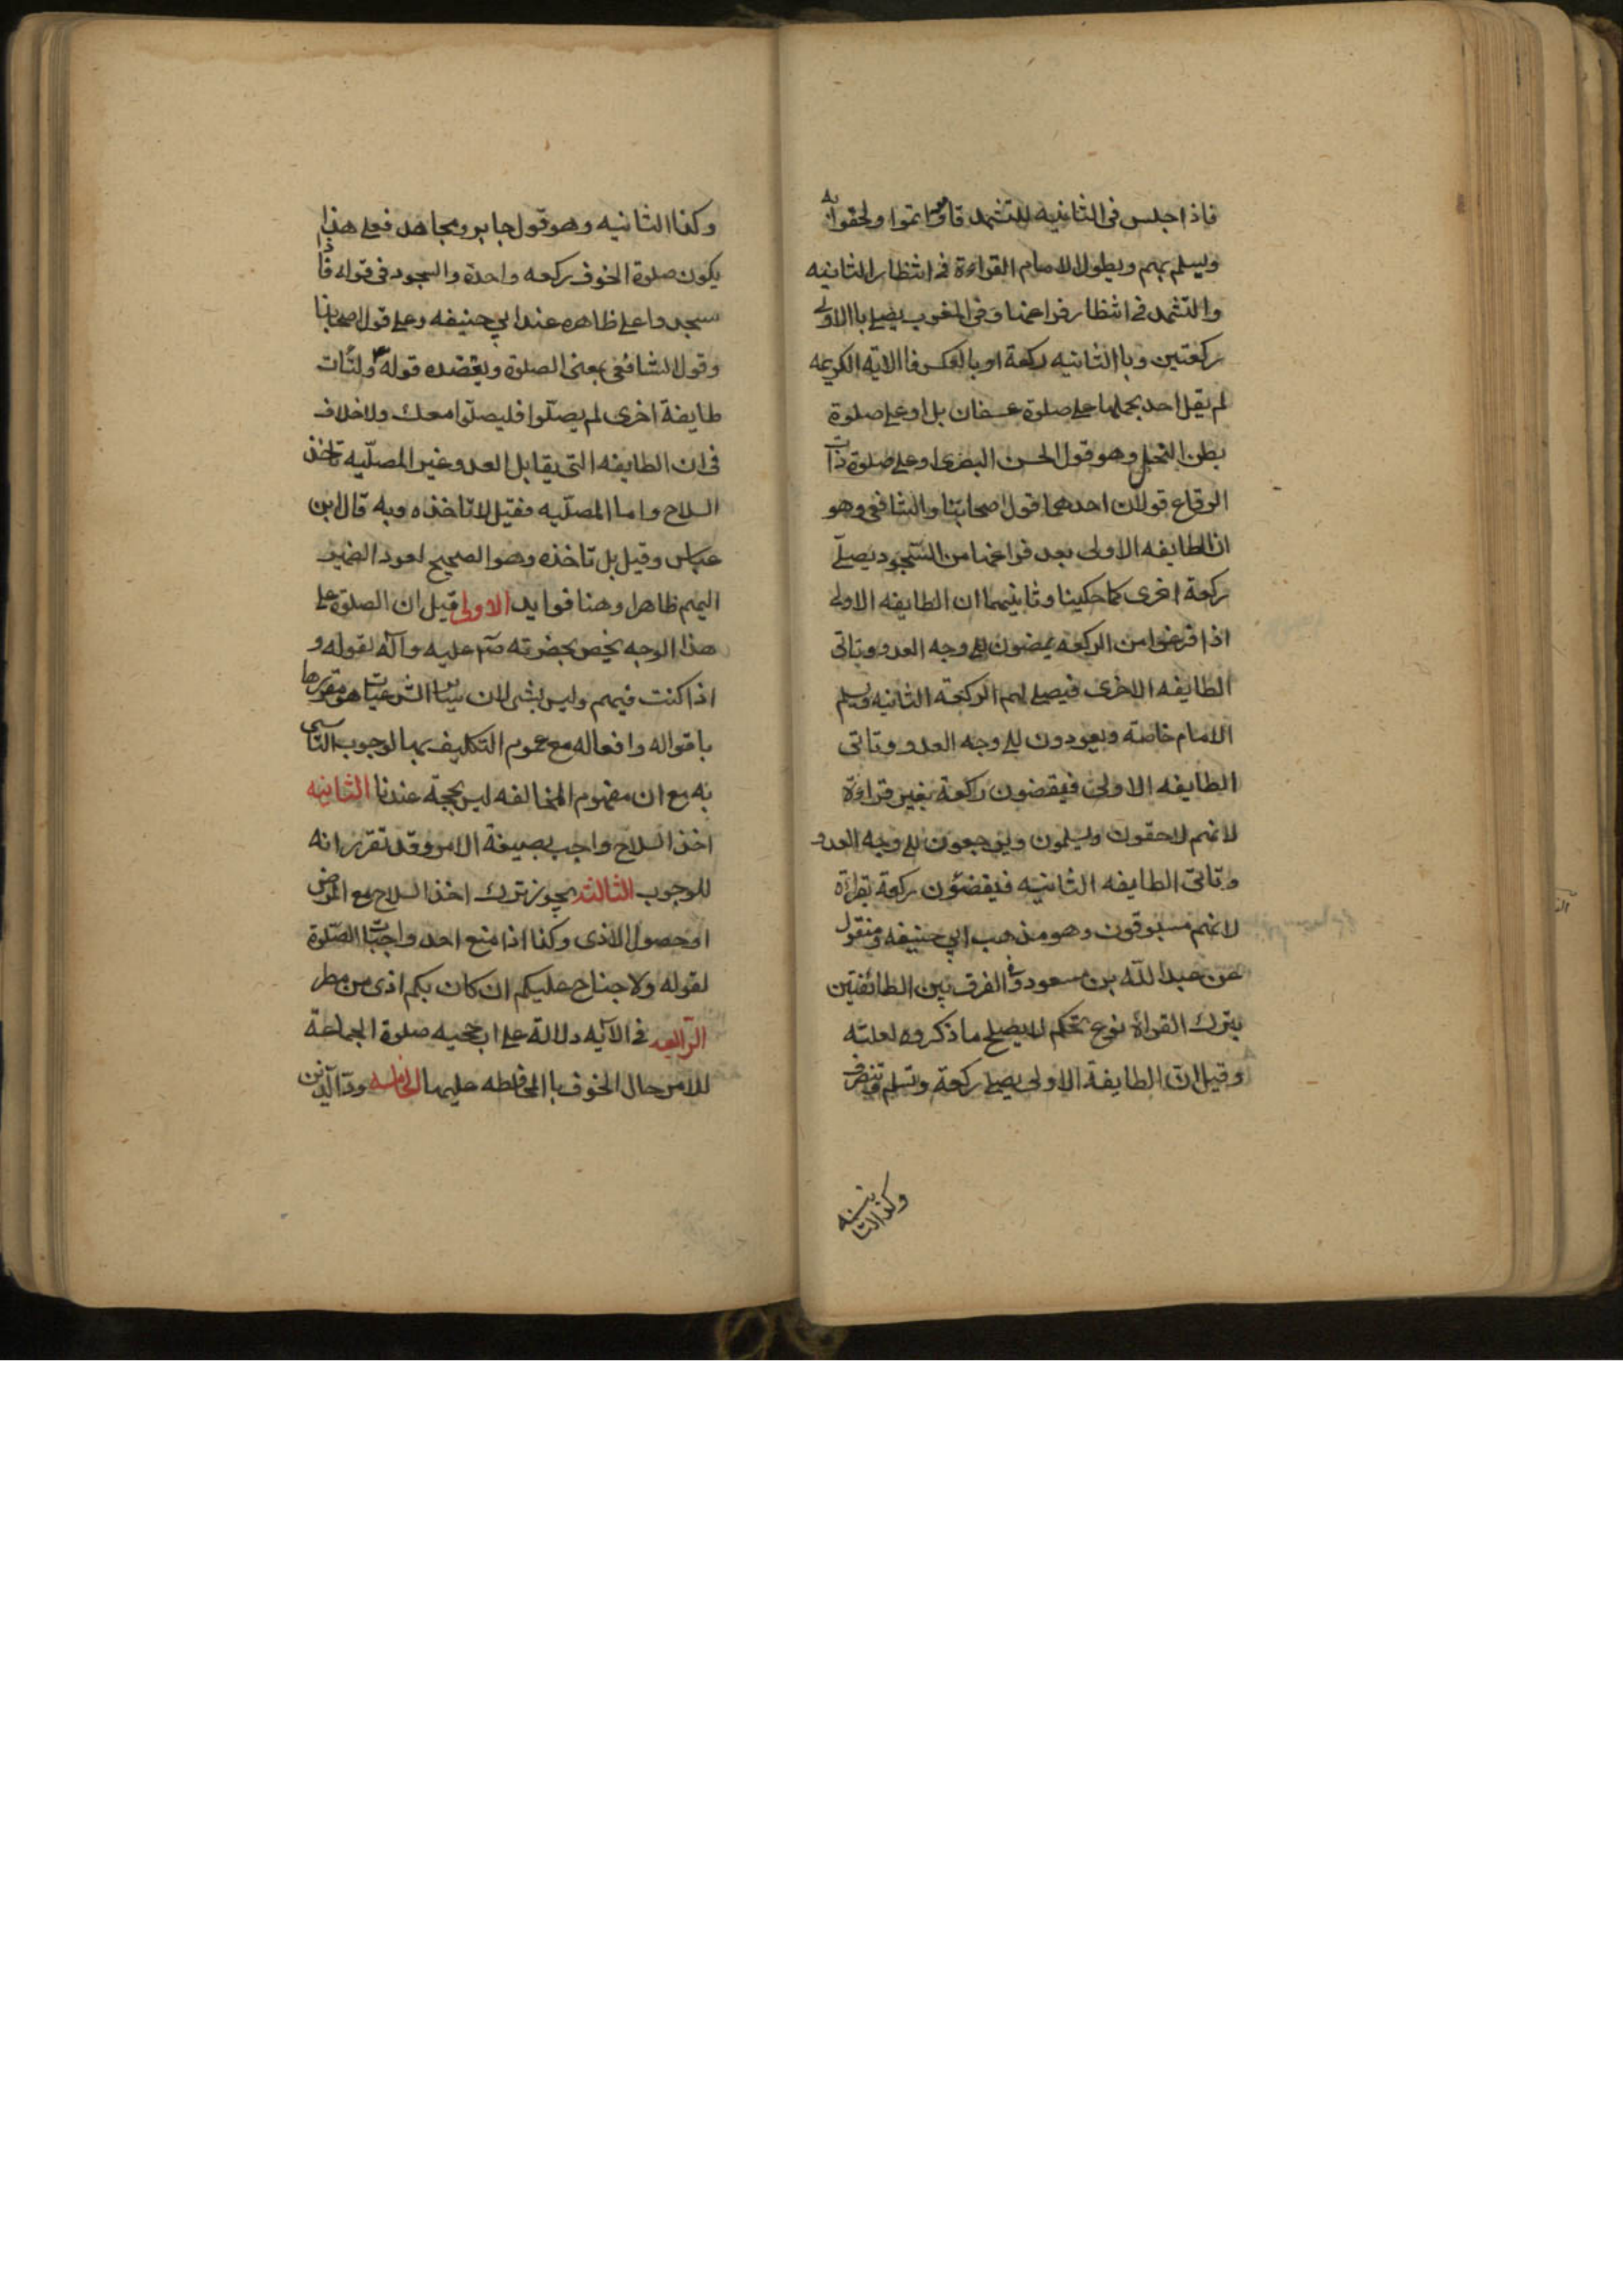 فاذا جلس فى الثانيه للتشهد قاموا اتموا ولحقوا به
ويسلم بهم ويطول الامام القراءة فى انتظار الثانيه
والتشهد فى انتظار فراغها وفى المغرب يصلى باالاولى
ركعتين وباالثانيه ركعة او بالعكس فاالاية الكريمه
لم يقل احد بحملها على صلوة عسفان بل او على صلوة
بطن النخل وهو قول الحسن البصرى او على صلوة ذات
الرقاع قولان احدهما قول اصحابنا والشافعى وهو
ان الطايفه الاولى بعد فراغها من السّجود يصلّى
ركعة اخرى كما حكينا وثانيهما ان الطايفه الاولى
اذا فرغوا من الركعه يمضون الى وجه العدو وتاتى
الطايفه الاخرى فيصلى بهم الركعة الثانيه ويسلم
الامام خاصّة ويعودون الى وجه العدو وتاتى
الطايفه الاولى فيقضون ركعة بغير قراءة
لانهم لاحقون ويسلمون ويرجعون الى وجه العدو
وتاتى الطايفه الثانيه فيقضون ركعة بقراءة
لانهم مسبوقون وهو مذهب ابى حنيفه ومنقول
عن عبدالله بن مسعود وفى الفرق بين الطائفتين
بترك القراءة نوع تحكم لا يصلح ما ذكروه لعلّته
وقيل انّ الطايفة الاولى يصلى ركعة وتسلم وتنصرف
وكذا الثانيه
وكذا الثانيه وهو قول جابر ومجاهد فعلى هذا
يكون صلوة الخوف ركعه واحدة والسجود فى قوله فاذا
سجدوا على ظاهره عند ابى حنيفه وعلى قول اصحابنا
وقول الشافعى بمعنى الصلوة ويعضده قوله ولتات
طايفة اخرى لم يصلّوا فليصلّوا معك ولا خلاف
فى ان الطايفه التى يقابل العدو غير المصلّيه تاخذ
السلاح واما المصلّيه فقيل لا تاخذه وبه قال ابن
عباس وقيل بل تاخذه وهو الصحيح لعود الضمير
اليهم ظاهرا وهنا فوايد الاولى قيل ان الصلوة على
هذا الوجه يخص بحضرته صم عليه وآله لقوله و
اذا كنت فيهم وليس بشى لان ساير الشرعيات هو مقررها
باقواله وافعاله مع عموم التكليف بها لوجوب التاسى
به مع ان مفهوم المخالفه ليس بحجّة عندنا الثانيه
اخذ السلاح واجب بصيغة الامر وقد تقرر انه
للوجوب الثالثه يجوز ترك اخذ السلاح مع المرض
او حصول الاذى وكذا اذا منع احد واجبات الصّلوة
لقوله ولا جناح عليكم ان كان بكم اذى من مطر
الرّابعه فى الآيه دلالة على ارجحيه صلوة الجماعة
للامر حال الخوف باالمحافظه عليها الخامسه